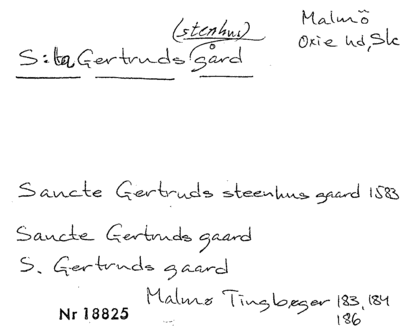 (stenhus)
Malmö
Oxie hd, Sk
S:ta Gertruds gård
Sancte Gertruds steenhus gaard 1583
Sancte Gertruds gaard
S. Gertruds gaard
Malmø Tingbøger 183, 184
186
Nr 18825